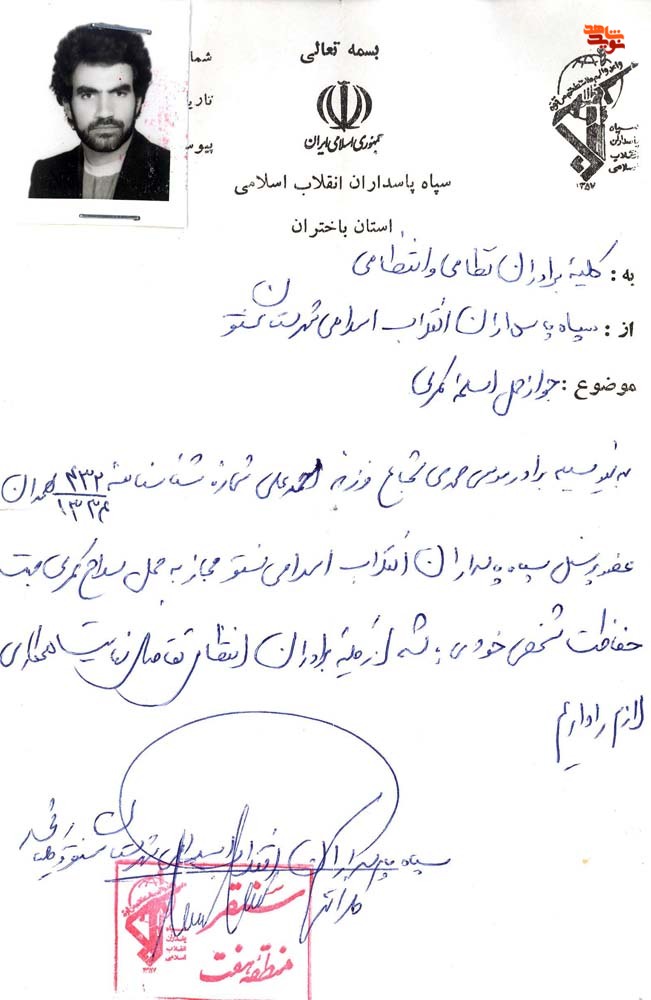 شاهد
نوید
بسمه تعالی
شما
تاری
پیوس
جمهوری اسلامی ایران
سپاه پاسداران انقلاب اسلامی
۱۳۵۷
سپاه پاسداران انقلاب اسلامی
استان باختران
به : کلیهٔ برادران نظامی و انتظامی
از : سپاه پاسداران انقلاب اسلامی شهرستان سنقر
موضوع : جواز حمل اسلحهٔ کمری
بدینوسیله برادر موسی محمدی شجاع فرزند احمدعلی شماره شناسنامهٔ ۴۳۲ همدان
۱۳۳۴
عضو پرسنل سپاه پاسداران انقلاب اسلامی سنقر مجاز به حمل سلاح کمری جهت
حفاظت شخصی خود می باشد از کلیهٔ برادران انتظامی تقاضای نهایت همکاری
لازم را داریم
سپاه پاسداران انقلاب اسلامی شهرستان سنقر و کلیائی
سنقر
منطقه هفت
سپاه پاسداران انقلاب اسلامی
۱۳۵۷